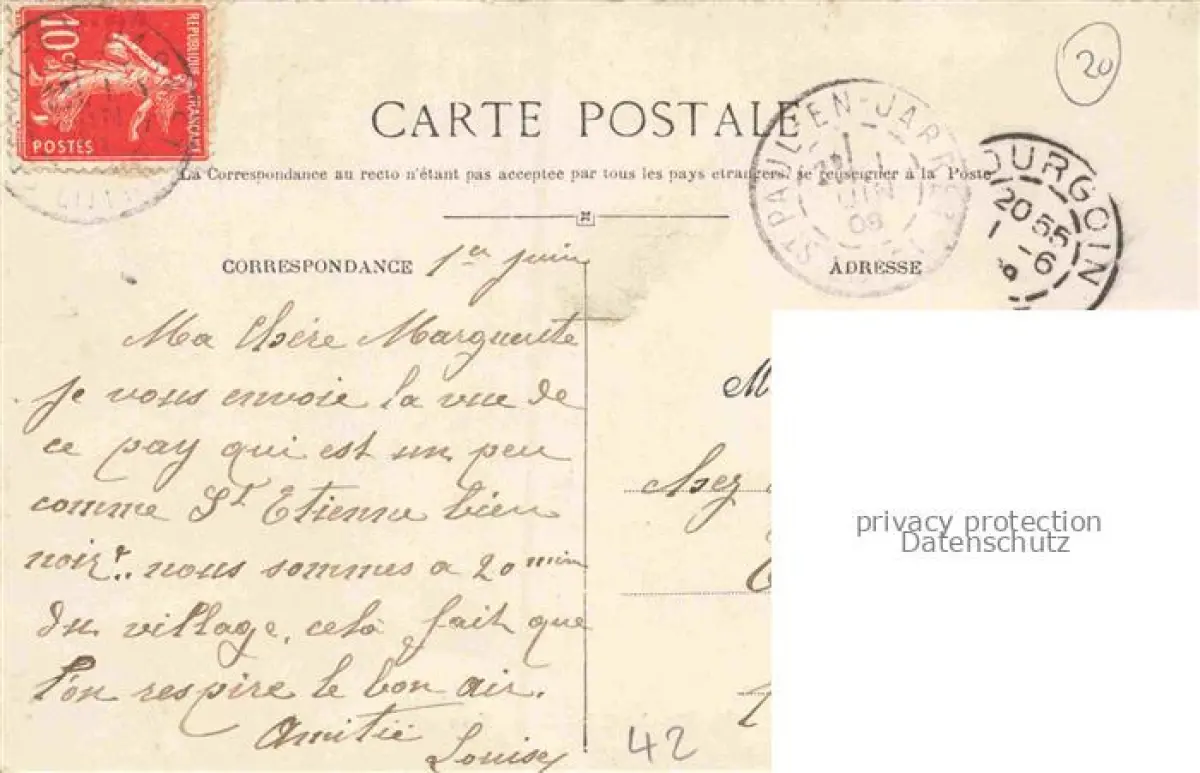 REPUBLIQUE FRANCAISE
10c
POSTES
20
CARTE POSTALE
La Correspondance au recto n'étant pas acceptée par tous les pays étrangers, se renseigner à la Poste
ST PAUL-EN-JARREZ
1
JUIN
08
BOURGOIN
20 55
1 -6
CORRESPONDANCE
ADRESSE
1er juin
Ma Chére Marguerite
je vous envoie la vue de
ce pay qui est un peu
comme St Etienne bien
noir.. nous sommes a 20 min
du village, cela fait que
l'on respire le bon air.
Amitié
Louise
M
chez
42
privacy protection
Datenschutz